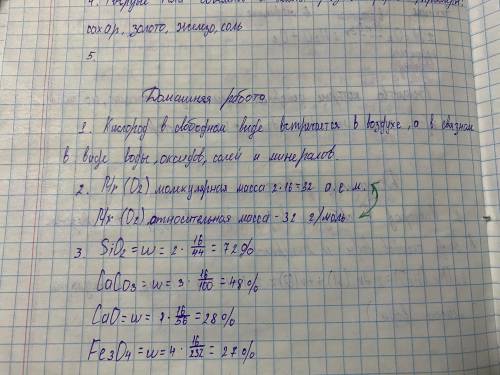 сахар, золото, железо, соль
5.
Домашняя работа
1. Кислород в свободном виде встречается в воздухе, а в связном
в виде воды, оксидов, солей и минералов.
2. Mr (O2) молкулярная масса 2·16=32 а.е.м.
Mr (O2) относительная масса - 32 г/моль
3. SiO2 = w = 2 · 16/44 = 72%
CaCO3 = w = 3 · 16/100 = 48%
CaO = w = 1 · 16/56 = 28%
Fe3O4 = w = 4 · 16/232 = 27%